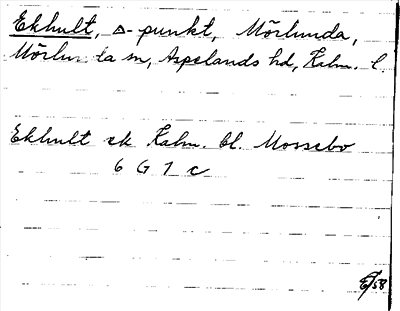 Ekhult, △-punkt, Mörlunda,
Mörlunda sn, Aspelands hd, Kalm. l.
Ekhult ek Kalm. bl. Mossebo
6 G 7 c
E/58